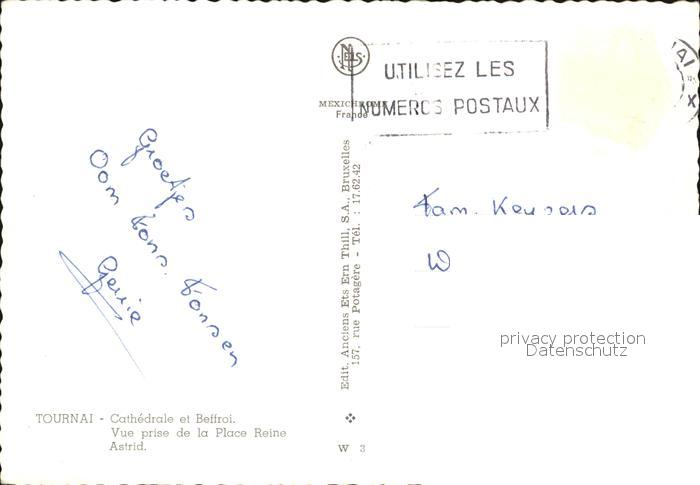 NELS
MEXICHROME
France
UTILISEZ LES
NUMEROS POSTAUX
AI
X
Groetjes
Oom Fons.
Gerrie
Fam.
W
privacy protection
Datenschutz
Edit. Anciens Ets Ern Thill, S.A., Bruxelles
157, rue Potagère - Tél. : 17.62.42
TOURNAI - Cathédrale et Beffroi.
Vue prise de la Place Reine
Astrid.
W 3